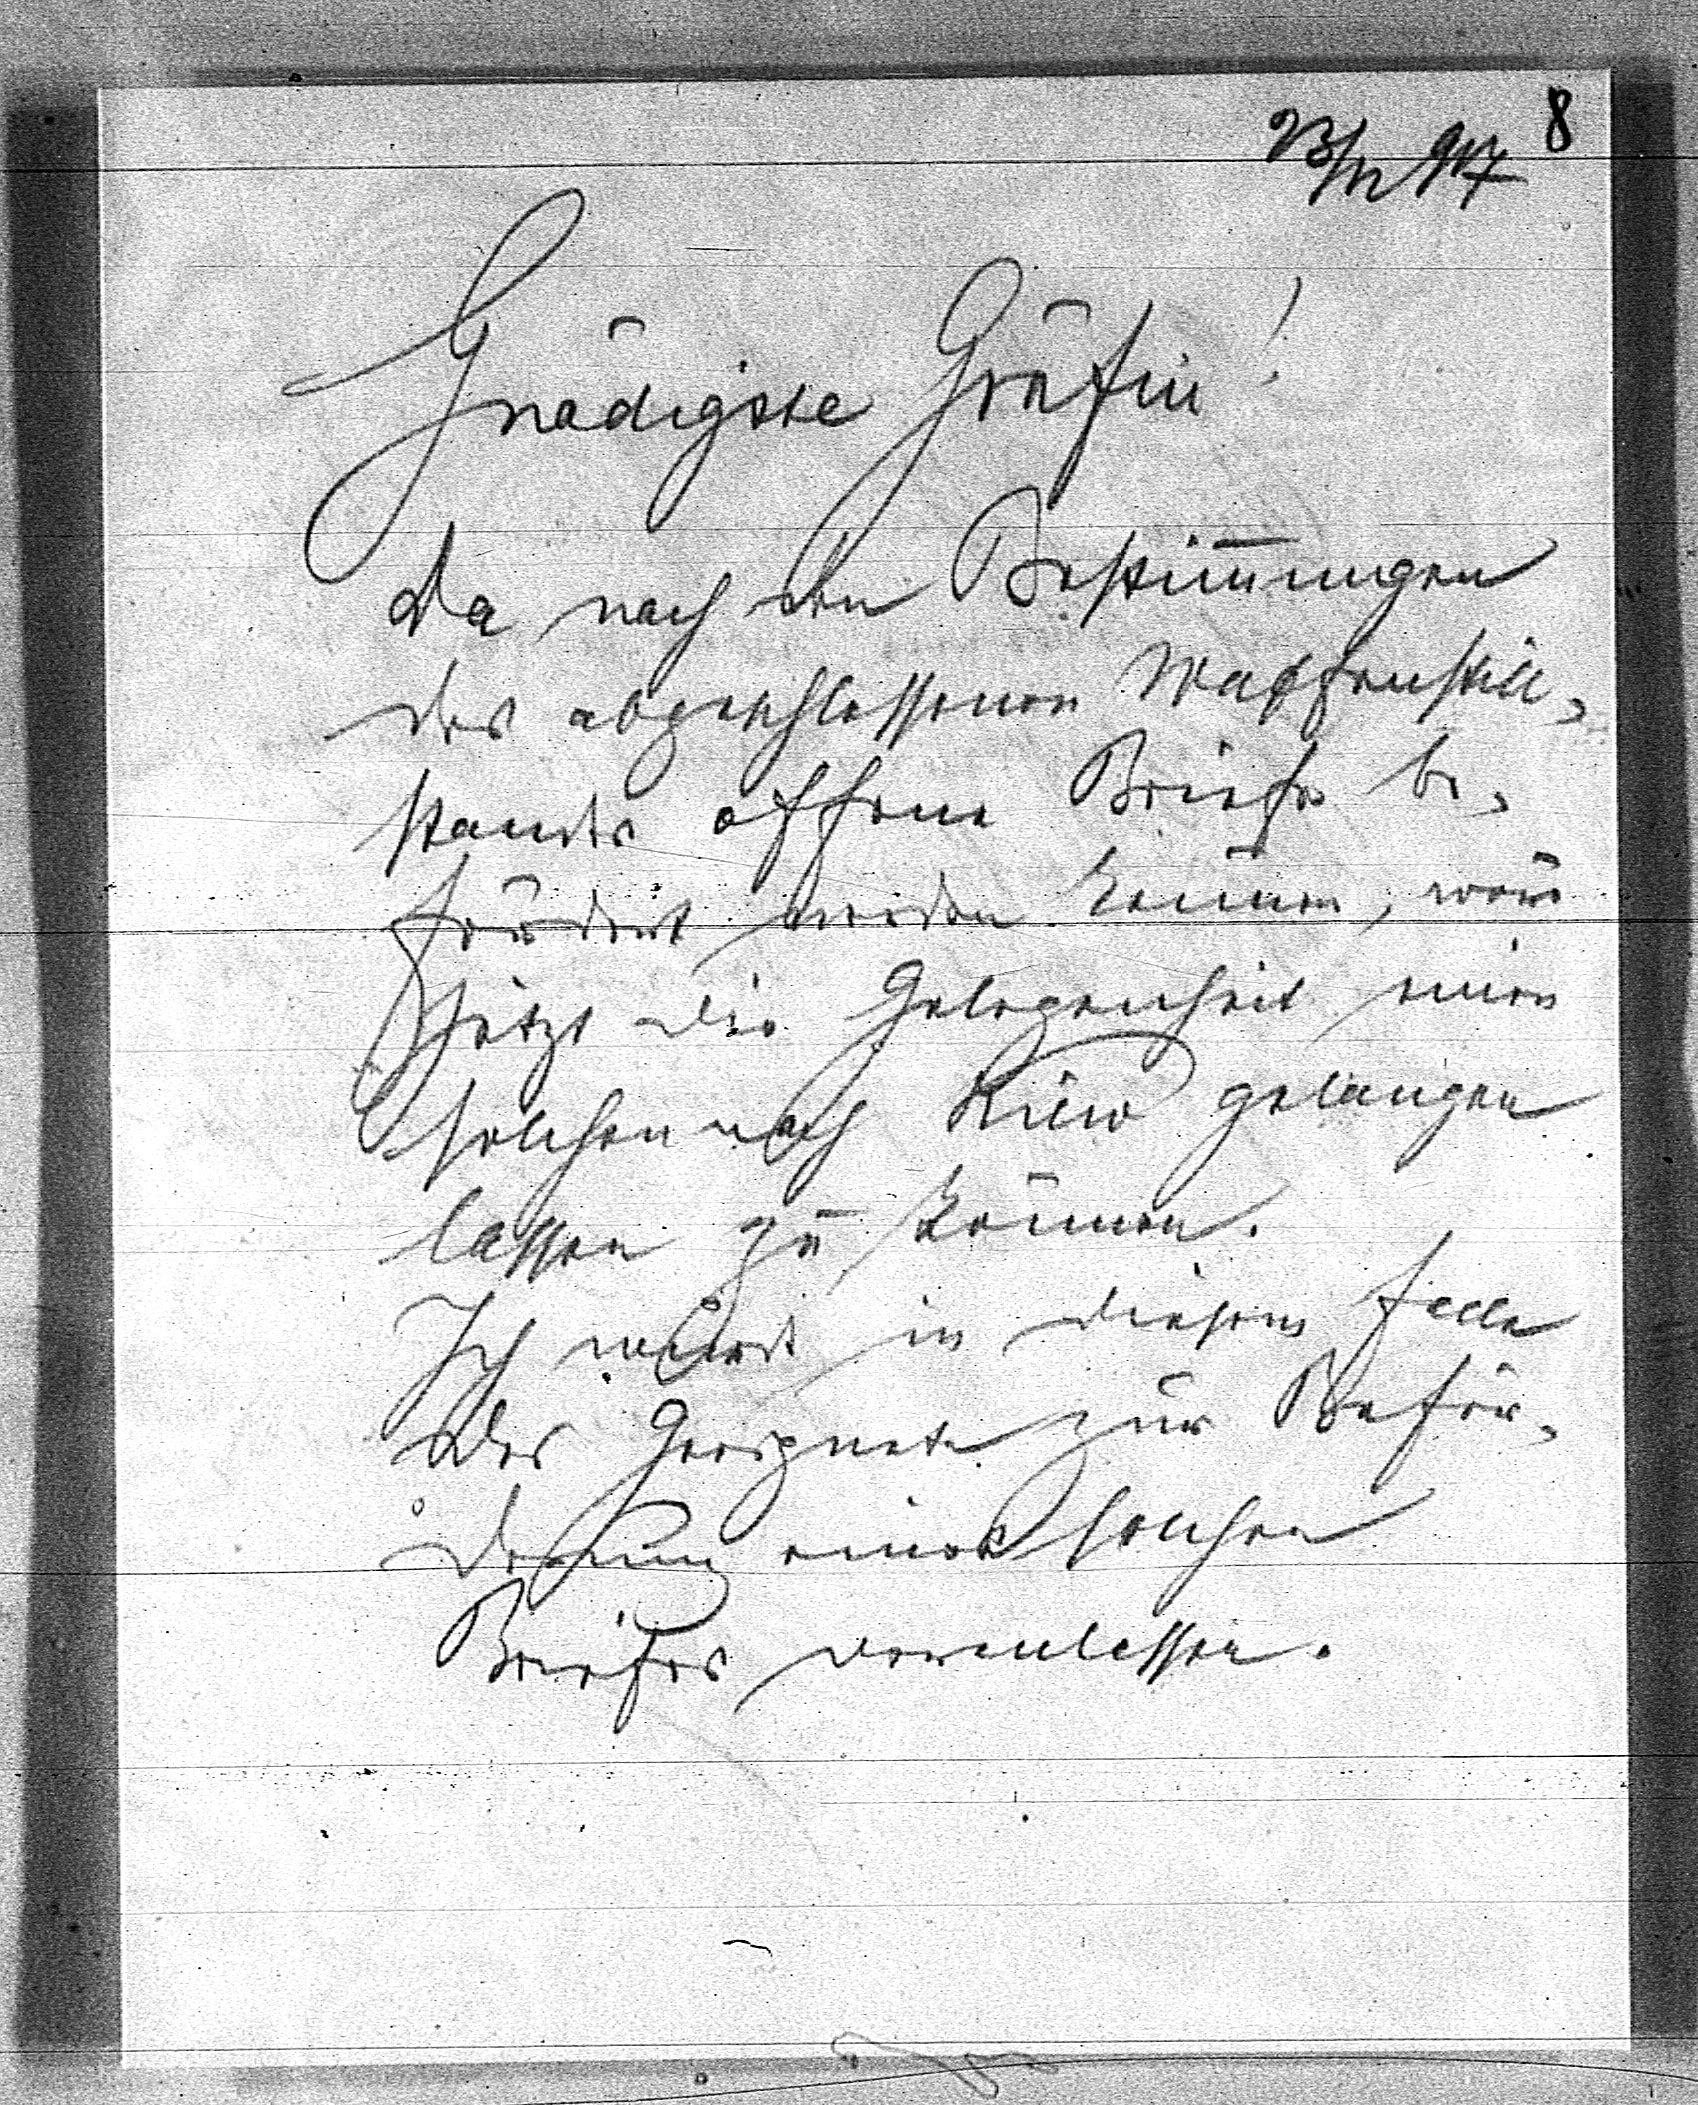 8
23/12 917
Gnädigste Gräfin!
Da nach den Bestim̅ungen
des abgeschlossenen Waffenstill-
standes offene Briefe be-
fördert werden können, wäre
jetzt die Gelegenheit einen
solchen nach Kiew gelangen
lassen zu können.
Ich würde in diesem Falle
das Geeignete zur Beför-
derung eines solchen
Briefes veranlassen.